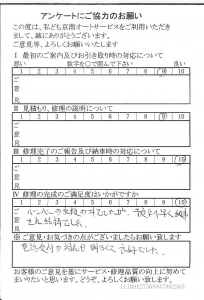 アンケートにご協力のお願い
この度は、私ども京南オートサービスをご利用いただき
まして、誠にありがとうございます。
ご意見等、よろしくお願いいたします
Ⅰ 最初のご案内及びお引き取り時の対応について
悪い 数字を○で囲んで下さい 良い
1 2 3 4 5 6 7 8 9 10
ご意見
Ⅱ 見積もり、修理の説明について
1 2 3 4 5 6 7 8 9 10
ご意見
Ⅲ 修理完了のご報告及び納車時の対応について
1 2 3 4 5 6 7 8 9 10
ご意見
Ⅳ 修理の完成のご満足度はいかがですか
1 2 3 4 5 6 7 8 9 10
ご意見
バンパーの交換のみでしたが、予定より早く納車
でした。
※ご意見・お気づきの点がございましたらお願い致します
電話受付の対応も明るくて良かったです。
お客様のご意見を基にサービス・修理品質の向上に努めて
まいりたいと思います。どうぞ、よろしくお願い致します。